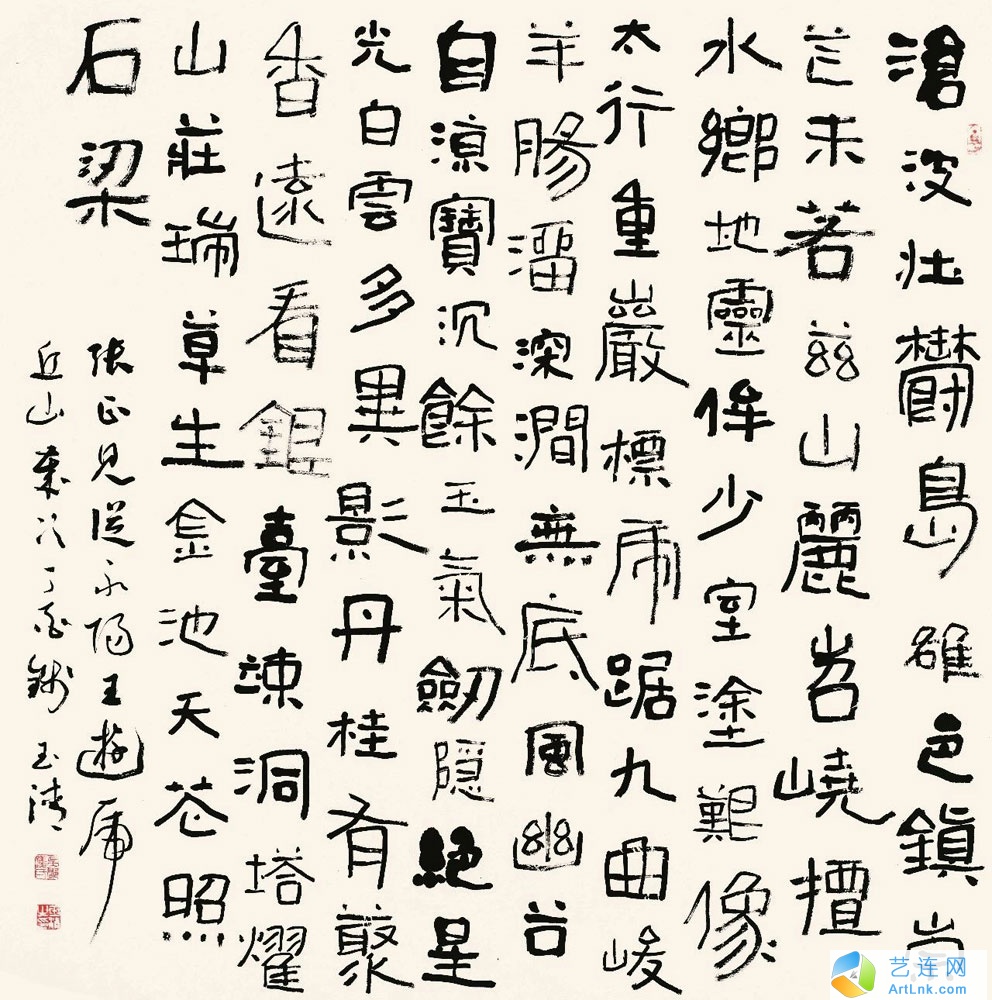 滄波壯鬱島雒邑鎮崇
芒未若茲山麗岧嶢擅
水鄉地靈侔少室塗艱像
太行重巖標虎踞九曲峻
羊腸溜深澗無底風幽谷
自涼寶沉餘玉氣劒隱絕星
光白雲多異影丹桂有藂
香遠看銀臺竦洞塔耀
山莊瑞草生金池天花照
石梁
張正見從永陽王遊虎
丘山歲次丁酉錢玉清
艺连网
ArtLnk.com